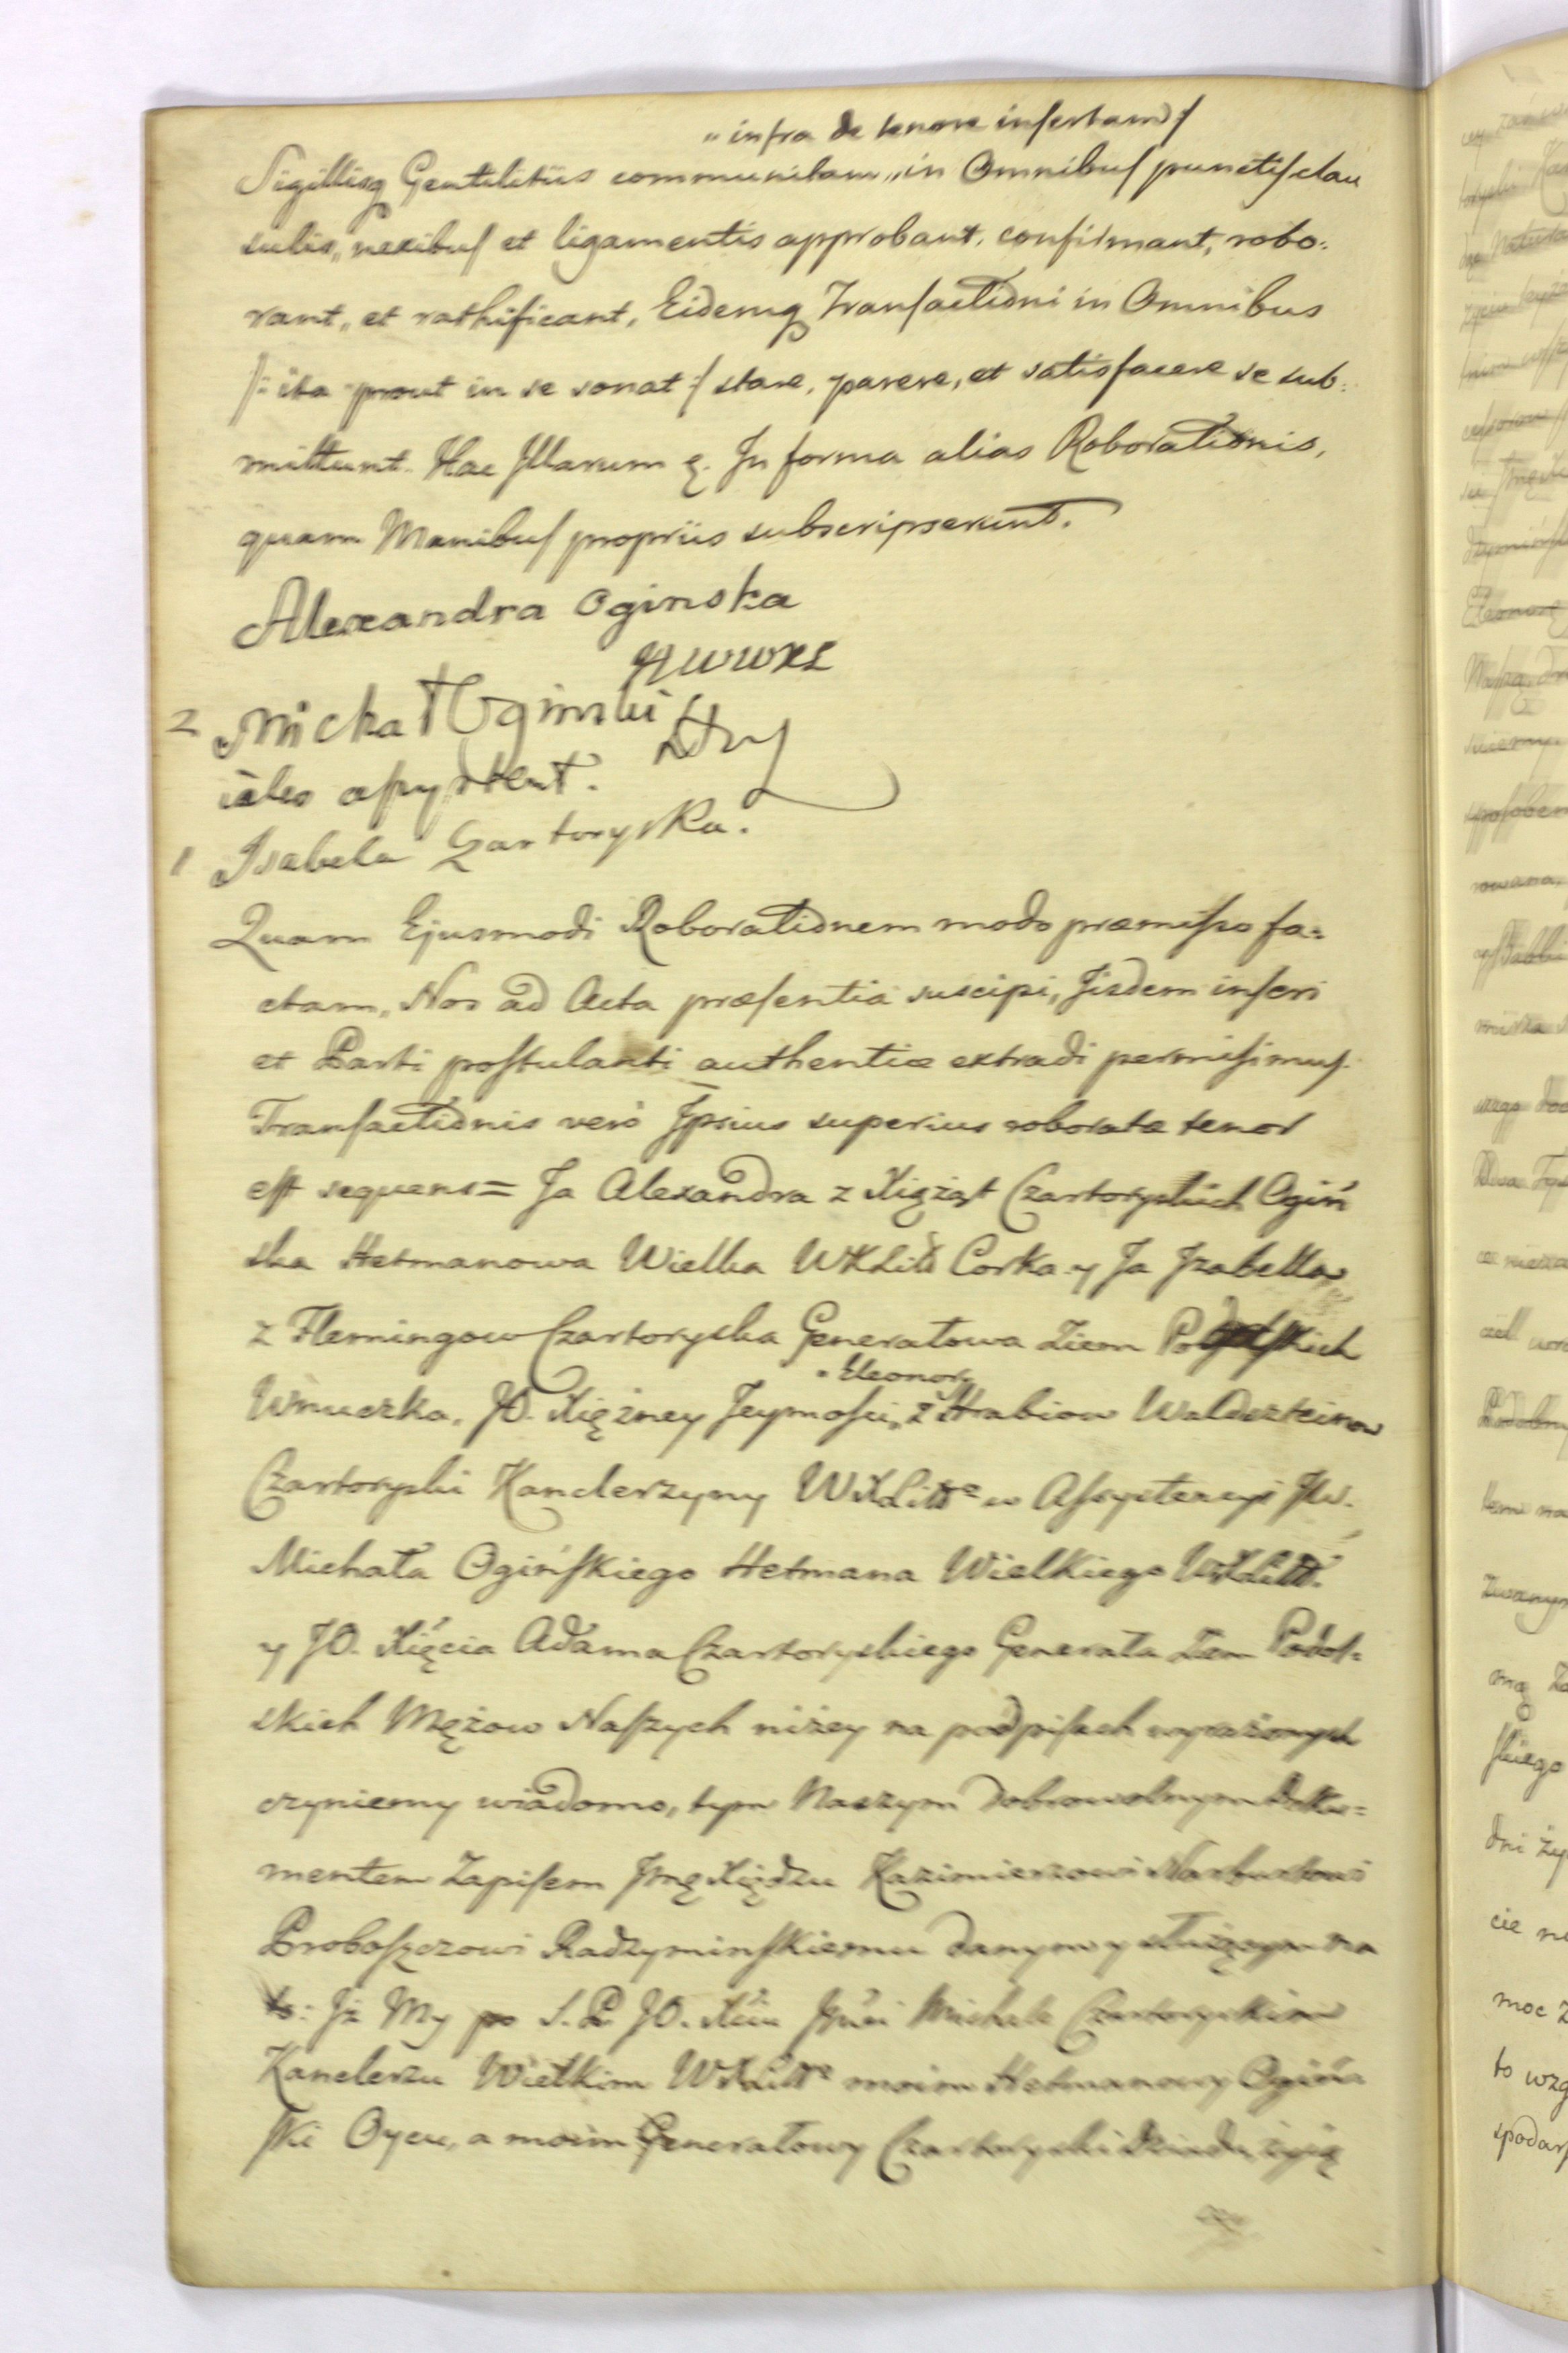 „infra de tenore insertam:/
Sigillisq Gentilitiis communitam„in Omnibus punctis clau
sulis„ nexibus et ligamentis approbant, confirmant, robo:
rant„ et rathificant, Eidemq Transactioni in Omnibus
/: ita prout in se sonat :/ stare, parere, et satisfacere se sub:
mittunt. Hac Illarum q. In forma alias Roborationis,
quam Manibus propriis subscripserunt.
Alexandra Oginska
HWWXL
2 Michał Oginski
iako assystent.
1 Isabela Czartoryska.
Quam Ejusmodi Roborationem modo præmisso fa:
ctam, Nos ad Acta præsentia suscipi, Jisdem inseri
et Parti postulanti authentice extradi permisimus.
Transactionis verò Jpsius superius roboratæ tenor
est sequens= Ja Alexandra z Xiążąt Czartoryskich Ogiń
ska Hetmanowa Wielka WXLitt Corka y Ja Jzabella
z Flemingow Czartoryska Generałowa Ziem Podolskich
„Eleonory
Wnuczka, JO. Xiężney Jeymości„ z Hrabiow Waldszteinow
Czartoryski Kanclerzyny WXLitt° w Assystencyi JW.
Michała Ogińskiego Hetmana Wielkiego WXLitt.
y JO. Xięcia Adama Czartoryskiego Generała Ziem Podol:
skich Mężow Naszych niżey na podpisach wyrażonych
czyniemy wiadomo, tym Naszym Dobrowolnym Doku=
mentem Zapisem Jmę Xiędzu Kazimierzowi Narbuttowi
Proboszczowi Radzyminskiemu danym y służącym na
to: Jż My po S. P. JO. Xciu Jmci Michale Czartoryskim
Kanclerzu Wielkim WXLitt° moim Hetmanowy Ogiń:
ski Oycu, a moim Generałowy Czartoryski Dziadu